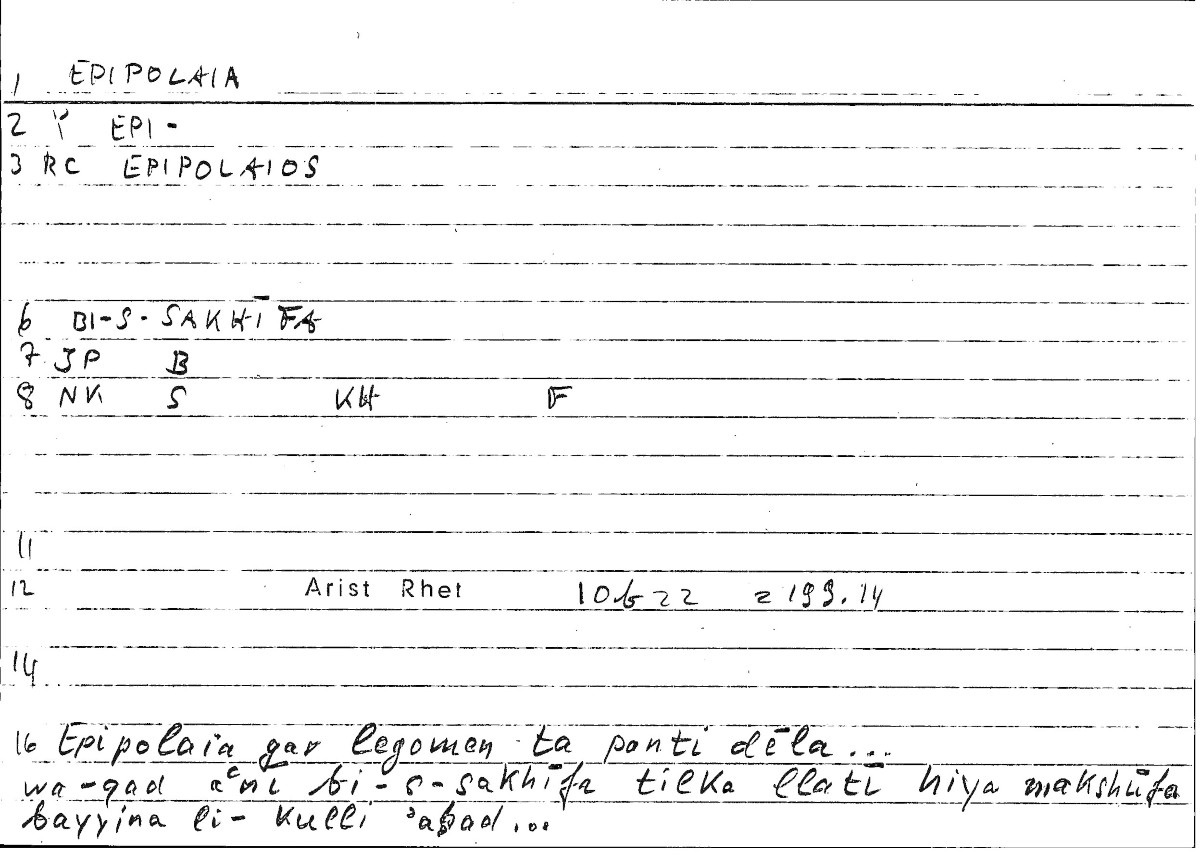 1 EPIPOLAIA
2 Y EPI-
3 RC EPIPOLAIOS
6 BI-S-SAKHĪFA
7 JP B
8 NK S KH F
11
12 Arist Rhet 10b22 = 199.14
14
16 Epipolaia gar legomen ta panti dēla...
wa-qad aʿnī bi-s-sakhīfa tilka llatī hiya makshūfa
bayyina li-kulli ʾaḥad...